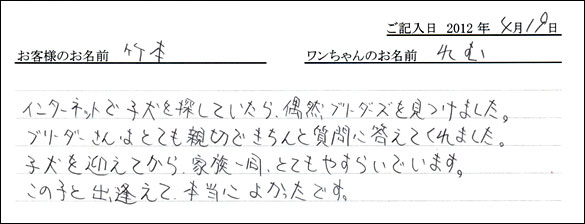 ご記入日 2012年 4月19日
お客様のお名前 竹本 ワンちゃんのお名前 れむ
インターネットで子犬を探していたら、偶然ブリーダズを見つけました。
ブリーダーさんはとても親切できちんと質問に答えてくれました。
子犬を迎えてから、家族一同、とてもやすらいでいます。
この子と出逢えて、本当によかったです。